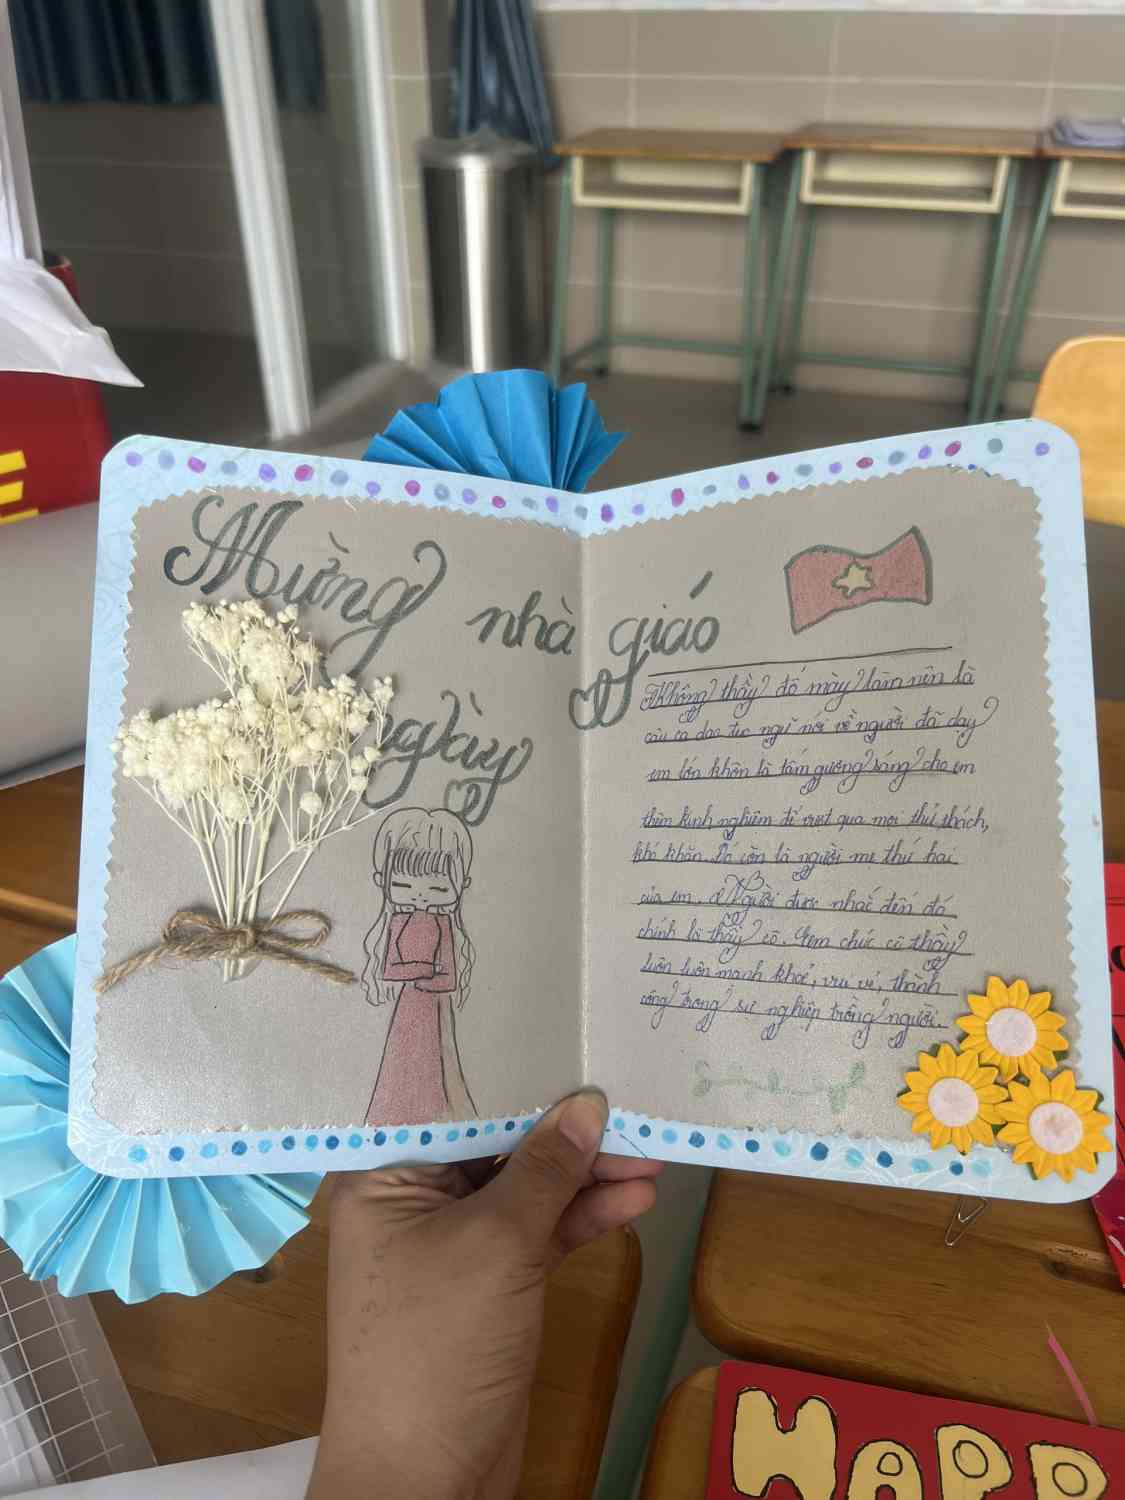 Mừng
nhà giáo
ngày
Không thầy đố mày làm nên là
câu ca dao tục ngữ nói về người đã dạy
em lớn khôn là tấm gương sáng cho em
thêm kinh nghiệm để vượt qua mọi thử thách,
khó khăn. Đó còn là người mẹ thứ hai
của em. Người được nhắc đến đó
chính là thầy cô. Em chúc cô thầy
luôn luôn mạnh khoẻ, vui vẻ, thành
công trong sự nghiệp trồng người.
HAPP